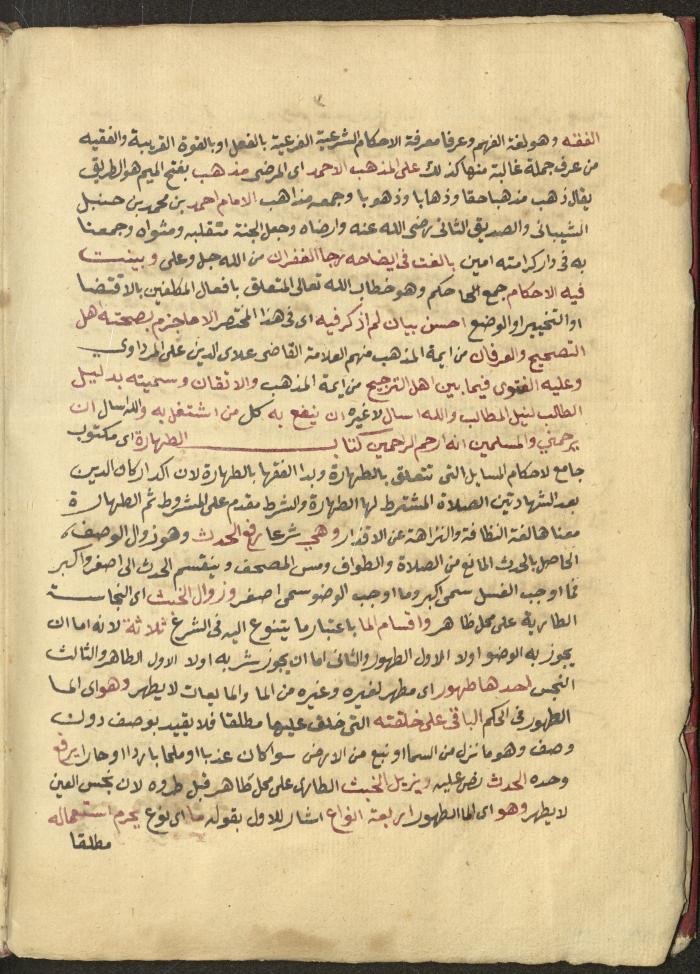 ٢
الفقه وهو لغة الفهم وعرفا معرفة الاحكام الشرعية الفرعية بالفعل او بالقوة القريبة والفقيه
من عرف جملة غالبة منها كذلك على المذهب الاحمد اى المرضى مذهب بفتح الميم هو الطريق
يقال ذهب مذهبا حقا وذهابا وذهوبا وجمعه مذاهب الامام احمد بن محمد بن حنبل
الشيبانى والصديق الثانى رضى الله عنه وارضاه وجعل الجنة متقلبه ومثواه وجمعنا
به فى دار كرامته امين بالغت فى ايضاحه رجا الغفران من الله جل وعلى وبينت
فيه الاحكام جمع حكم وهو خطاب الله تعالى المتعلق بافعال المكلفين بالاقتضا
او التخيير او الوضع احسن بيان لم اذكر فيه اى فى هذا المختصر الا ما جزم بصحته اهل
التصحيح والعرفان من ايمة المذهب منهم العلامة القاضى علاى الدين على المرداوي
وعليه الفتوى فيما بين اهل الترجيح من ايمة المذهب والاتقان وسميته بدليل
الطالب لنيل المطالب والله اسال لا غيره ان ينفع به كل من اشتغل به والله اسال ان
يرحمني والمسلمين انه ارحم الرحمين كتاب الطهارة اى مكتوب
جامع لاحكام المسايل التى تتعلق بالطهارة وبدا الفقها بالطهارة لان اكد اركان الدين
بعد الشهادتين الصلاة المشترط لها الطهارة والشرط مقدم على المشروط ثم الطهارة
معناها لغة النظافة والنزاهة عن الاقذار وهي شرعا رفع الحدث وهو زوال الوصف
الحاصل بالحدث المانع من الصلاة والطواف ومس المصحف وينقسم الحدث الى اصغر واكبر
فما اوجب الغسل سمى اكبر وما اوجب الوضو سمى اصغر وزوال الخبث اى النجاسة
الطارية على محل طاهر واقسام الما باعتبار ما يتنوع اليه فى الشرع ثلاثة لانه اما ان
يجوز به الوضو اولا الاول الطهور والثانى اما ان يجوز شربه اولا الاول الطاهر والثالث
النجس احدها طهور اى مطهر لغيره وغيره من الما والمايعات لا يطهر وهو اى الما
الطهور فى الحكم الباقى على خلقته التى خلق عليها مطلقا فلا يقيد بوصف دون
وصف وهو ما نزل من السما او نبع من الارض سوا كان عذبا او ملحا باردا او حارا يرفع
وحده الحدث نص عليه ويزيل الخبث الطارى على محل طاهر قبل طروه لان نجس العين
لا يطهر وهو اى الما الطهور اربعة انواع اشار للاول بقوله ما اى نوع يحرم استعماله
مطلقا